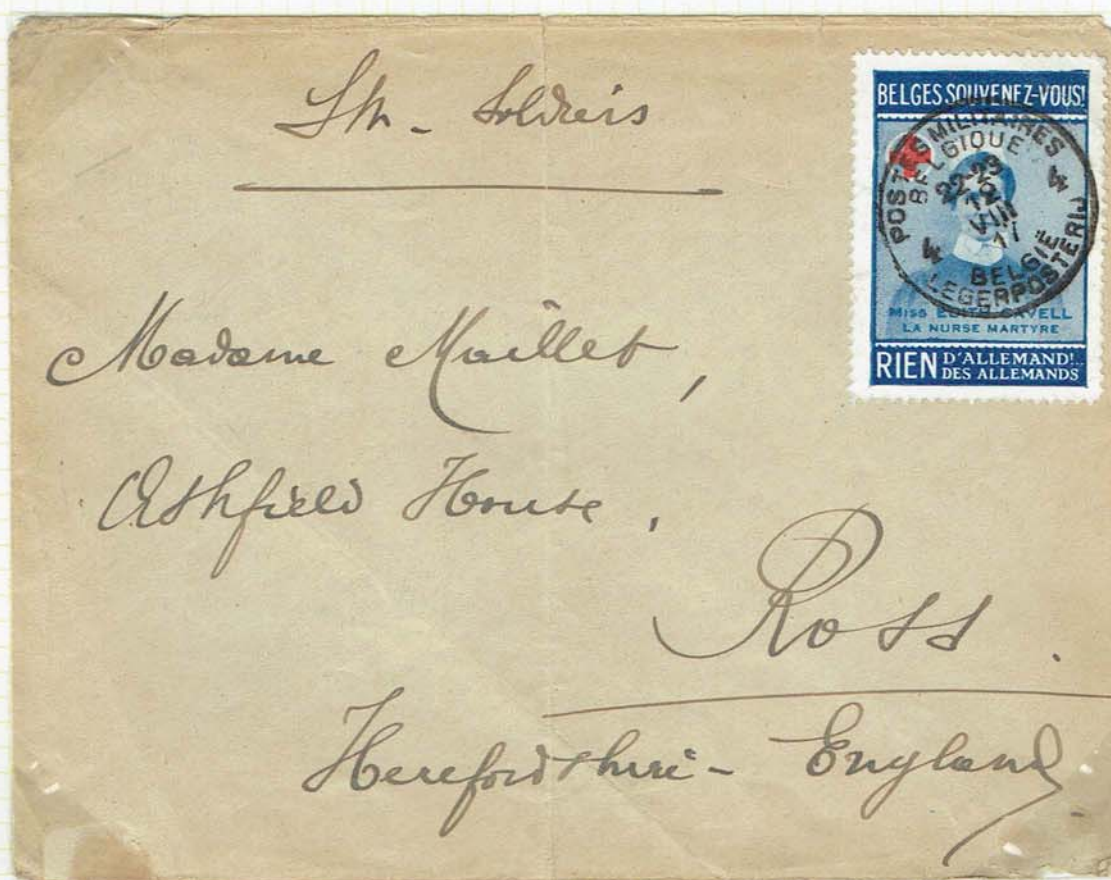 BELGES SOUVENEZ-VOUS!
POSTES MILITAIRES
BELGIQUE
22-23
12
VIII
17
4 4
BELGIË
LEGERPOSTERIJ
MISS EDITH CAVELL
LA NURSE MARTYRE
RIEN D'ALLEMAND!..
DES ALLEMANDS
Madame Maillet,
Ashfield House,
Ross.
Herefordshire - England